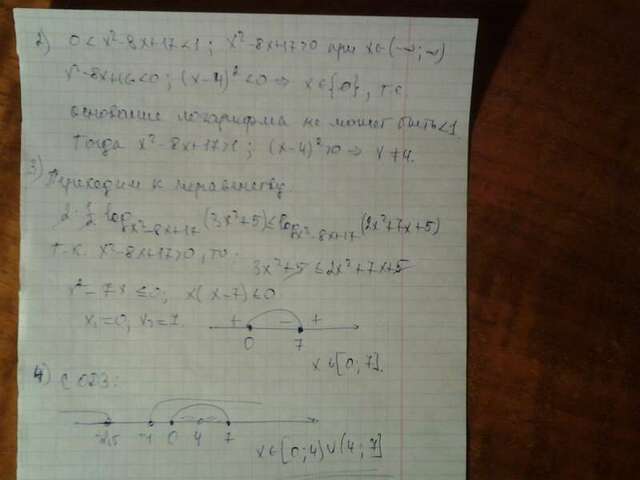 2) 0 < x²-8x+17 < 1 ; x²-8x+17>0 при x∈(-∞;∞)
x²-8x+16<0 ; (x-4)²<0 ⇒ x∈{0}, т.е.
основание логарифма не может быть <1.
Тогда x²-8x+17>1 ; (x-4)²>0 ⇒ x≠4.
3) Переходим к неравенству
2·½ log_{x²-8x+17}(3x²+5) ≤ log_{x²-8x+17}(2x²+7x+5)
т.к. x²-8x+17>0, то:
3x²+5 ≤ 2x²+7x+5
x²-7x ≤0; x(x-7) ≤0
x₁=0, x₂=7.
+ - +
0 7
x∈[0;7].
4) С ОДЗ:
-2,5 -1 0 4 7
x∈[0;4)∪(4;7]